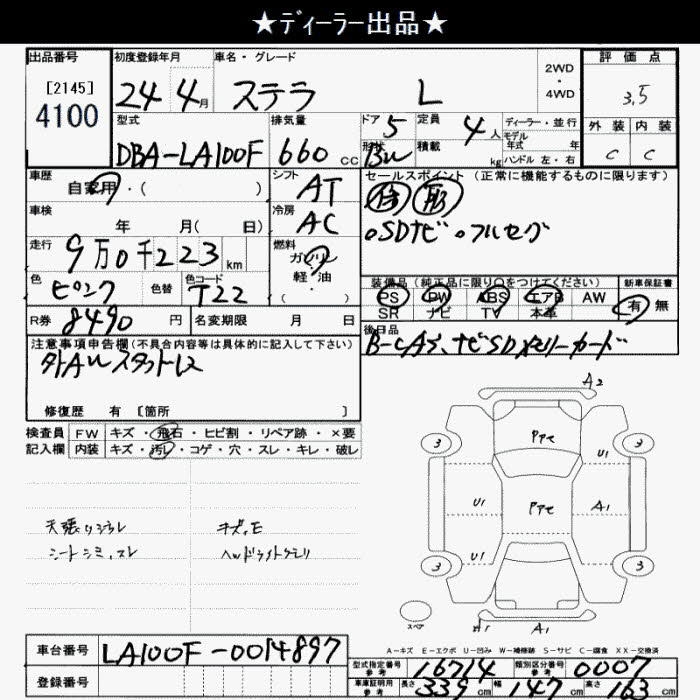 ★ディーラー出品★
出品番号 初度登録年月 車名・グレード 2WD・4WD 評価点
[2145] 4100 24 4月 ステラ L 3.5
型式 排気量 ドア 5 定員 4人 ディーラー・並行 外装 内装
形状 積載 kg モデル年式 年
DBA-LA100F 660cc ハンドル 左・右 C C
車歴 シフト セールスポイント (正常に機能するものに限ります)
自家用・( ) AT
車検 冷房
年 月( 日) AC ●SDナビ ●フルセグ
走行 燃料
9万0千223km ガソリン
軽・油
色 色替 色コード 装備品(純正品に限り○をつけてください) 新車保証書
ピンク T22 PS PW ABS エアB AW 有 無
SR ナビ TV 本革
R券 8490円 名変期限 月 日 後日品
B-CAS、ナビSDメモリーカード
注意事項申告欄(不具合内容等は具体的に記入して下さい)
外AWスタットレス
修復歴 有 [箇所 ]
検査員 FW キズ・飛石・ヒビ割・リペア跡・×要
記入欄 内装 キズ・汚レ・コゲ・穴・スレ・キレ・破レ
A2
3 Pアセ U1 3
U1 Pアセ A1
U1
3 3
天張り キズ、E
シートシミ、スレ ヘッドライトクモリ
スペア A1 A1
A-キズ E-エクボ U-凹み W-補修跡 S-サビ C-腐食 XX-交換済
車台番号 LA100F-0014897
型式指定番号 参考 16714 類別区分番号 参考 0007
登録番号
車庫証明用 参考 長さ 339cm 幅 147cm 高さ 163cm